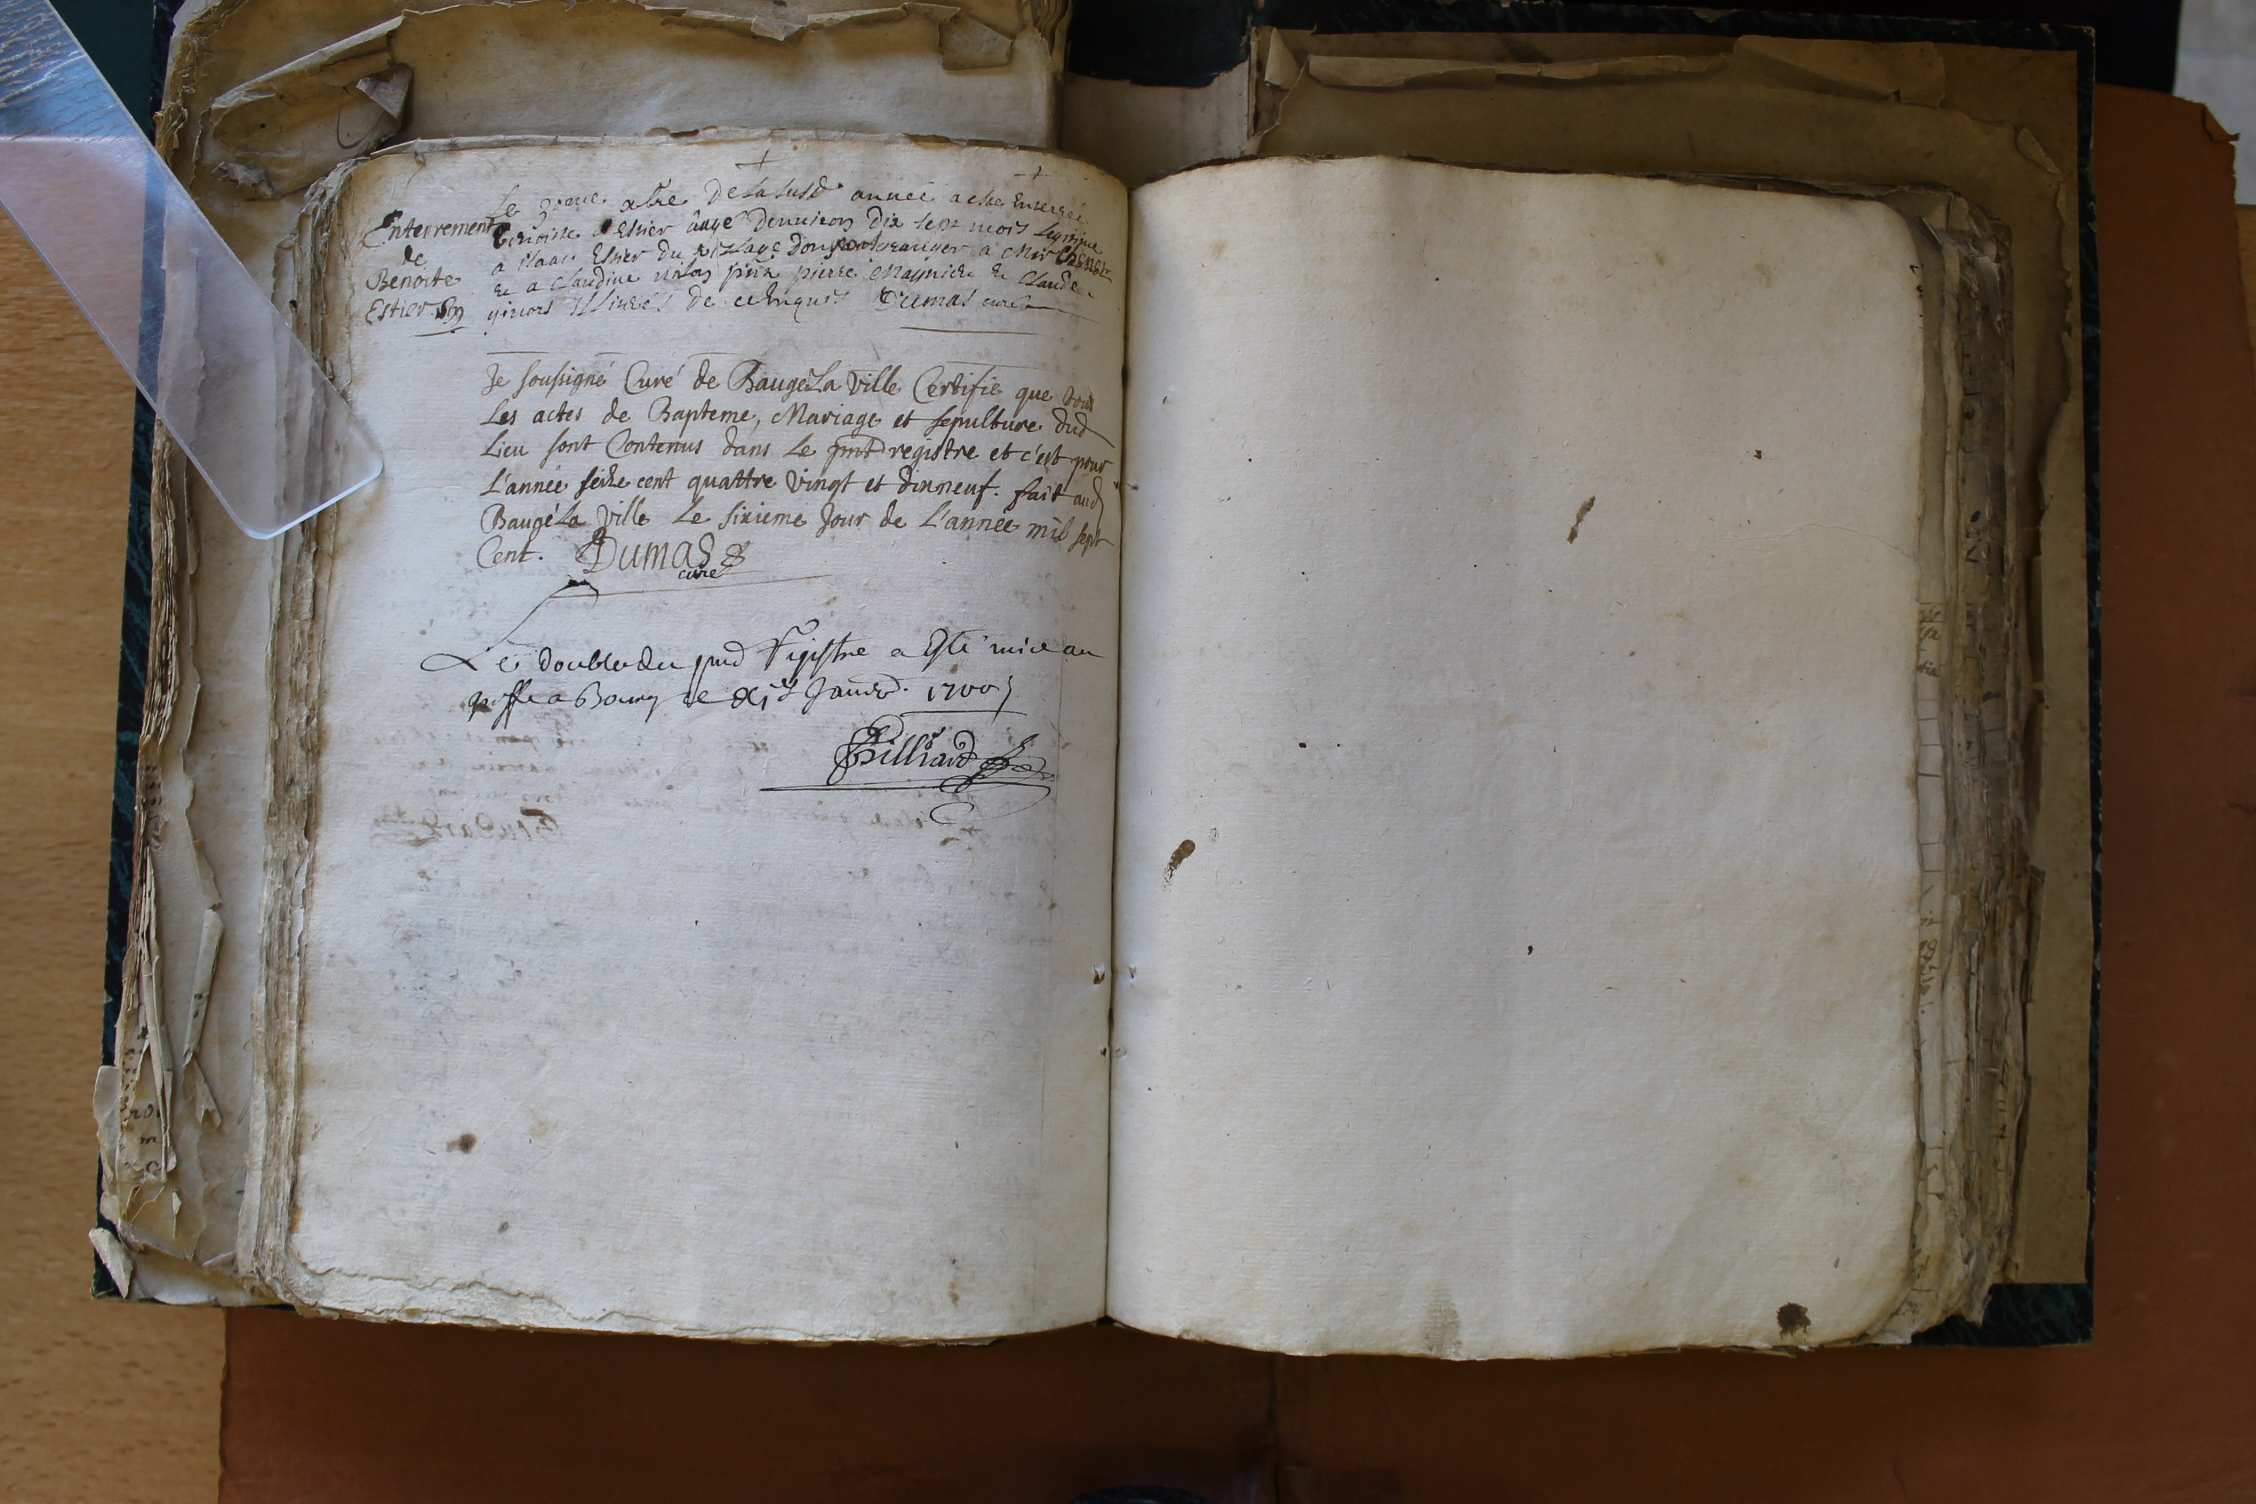 Enterrement
de
Benoite
Estier
Le xbre de la susd année a esté Enterrée
Benoiste Estier âgé denviron dix sept mois Legitime
a Estier du village
et a Claudine pierre et Claude
de ce Enquis Dumas curé
Je soussigné Curé de Baugé La ville Certifie que tous
Les actes de Bapteme, Mariage et sepulture dud
Lieu sont Contenus dans Le pnt registre et c'est pour
L'année seize cent quattre vingt et dixneuf. fait aud
Baugé La ville Le sixieme Jour de L'année mil sept
Cent. Dumas
curé
Le double du pnd Registre a Esté mice au
greffe a Bourg le xie Janvr. 1700
Billiard